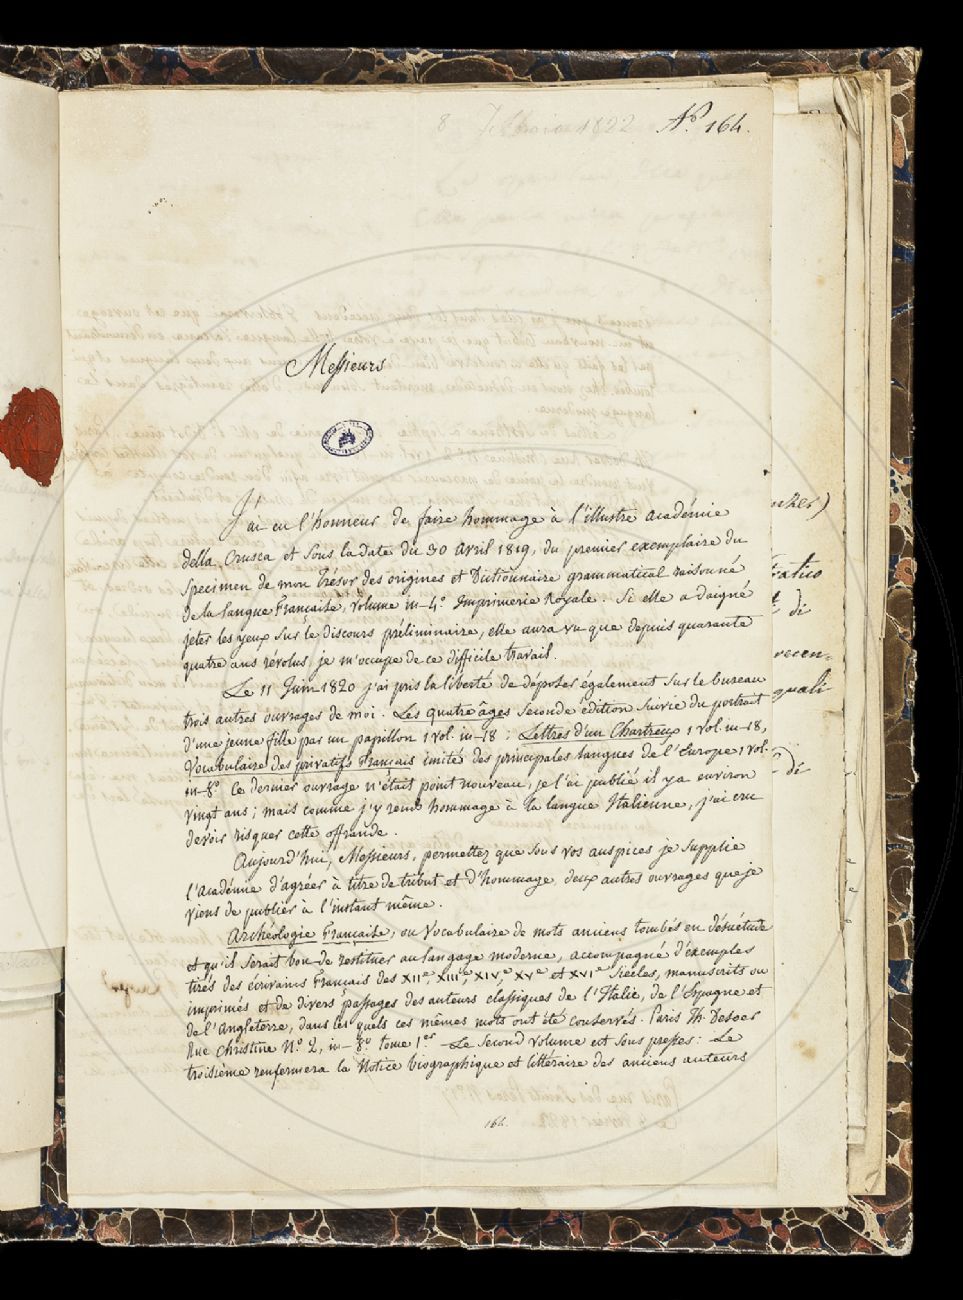 8 1822 N.º 164.
Messieurs
J'ai eu l'honneur de faire hommage à l'illustre académie
della Crusca et sous la date du 30 avril 1819, du premier exemplaire du
specimen de mon Trésor des origines et Dictionnaire grammatical raisonné
de la langue Française, volume in-4.º Imprimerie Royale. Si elle a daigné
jeter les yeux sur le discours préliminaire, elle aura vu que depuis quarante
quatre ans révolus je m'occupe de ce difficile travail.
Le 11 Juin 1820 j'ai pris la liberté de déposer également sur le bureau
trois autres ouvrages de moi. Les quatre âges seconde édition suivie du portrait
d'une jeune fille par un papillon 1 vol. in-18 ; Lettres d'un Chartreux 1 vol. in-18,
Vocabulaire des privatifs Français imité des principales langues de l'Europe 1 vol.
in-8º Ce dernier ouvrage n'était point nouveau, je l'ai publié il y a environ
vingt ans ; mais comme j'y rends hommage à la langue Italienne, j'ai cru
devoir risquer cette offrande.
Aujourd'hui, Messieurs, permettez que sous vos auspices je supplie
l'académie d'agréer à titre de tribut et d'hommage, deux autres ouvrages que je
viens de publier à l'instant même.
Archéologie Française, ou Vocabulaire de mots anciens tombés en désuétude
et qu'il serait bon de restituer au langage moderne, accompagné d'exemples
tirés des écrivains Français des XIIe, XIIIe, XIVe, XVe et XVIe Siècles, manuscrits ou
imprimés et de divers passages des auteurs classiques de l'Italie, de l'Espagne et
de l'Angleterre, dans lesquels ces mêmes mots ont été conservés. Paris Th. Desoer
Rue Christine N.º 2, in-8.º tome 1er Le second volume est sous presse. Le
troisième renfermera la Notice biographique et littéraire des anciens auteurs
164.
di
recen-
quali
di